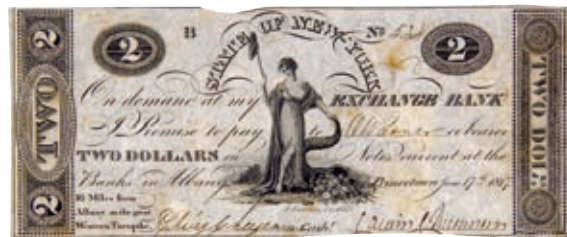 2 B STATE OF NEW-YORK No 2
TWO
2
On demand at my EXCHANGE BANK
I Promise to pay to or bearer
TWO DOLLARS in Notes current at the
Banks in Albany Princetown June 17th 1817
16 Miles from
Albany on the great
Western Turnpike. Cash!
2
TWO DOLS